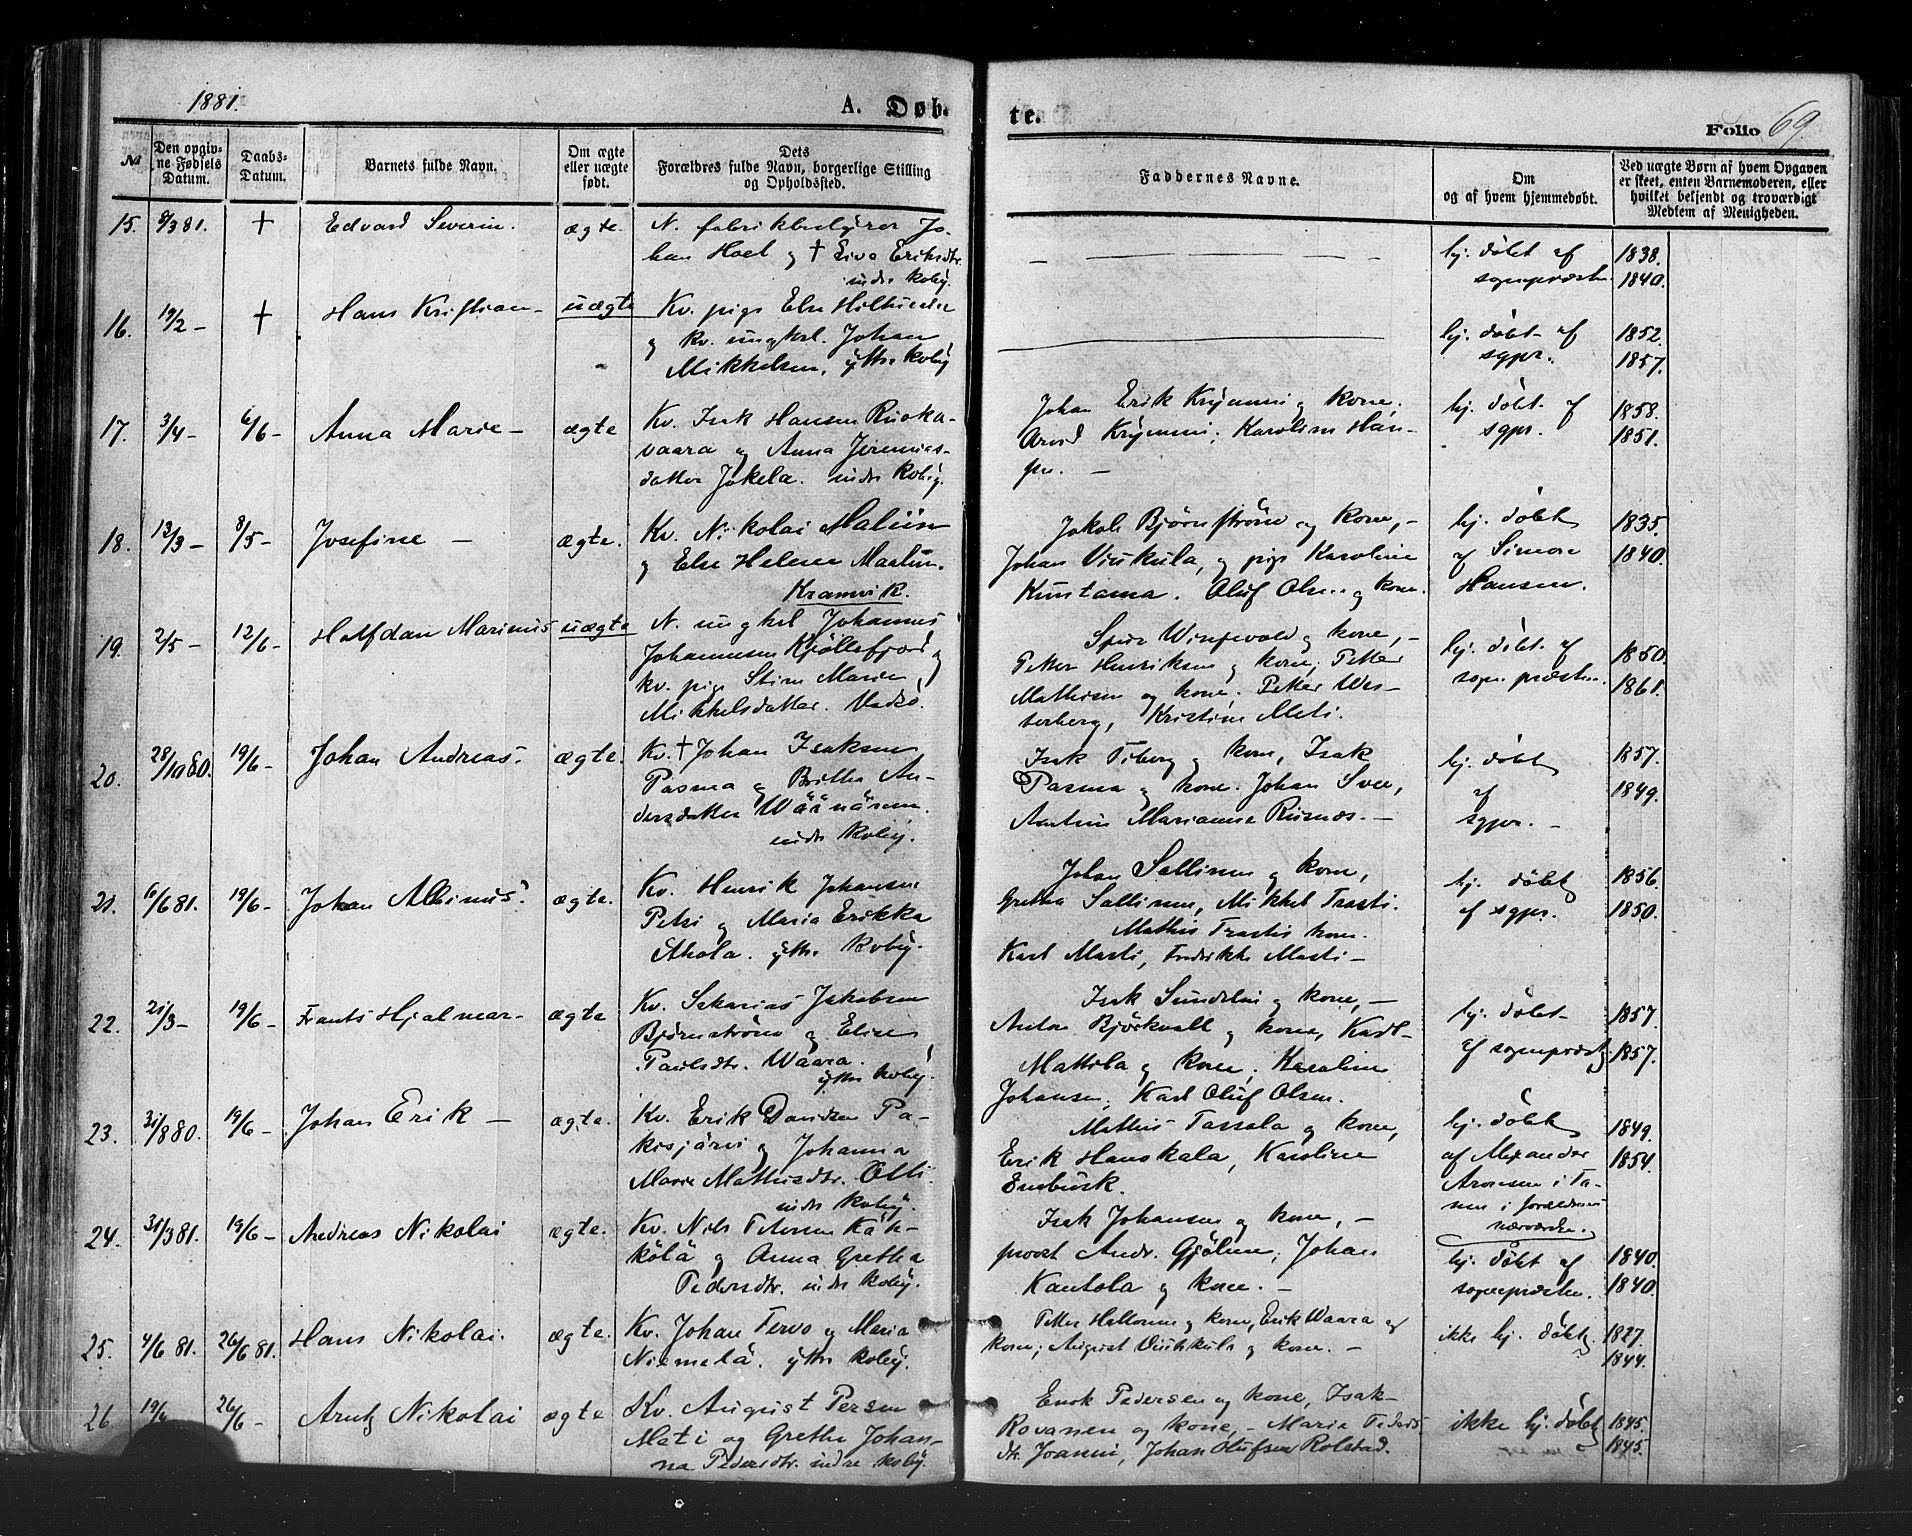 1881.
A. Døb-
te.
Folio 69.
№
Den opgiv-
ne Fødsels
Datum.
Daabs-
Datum.
Barnets fulde Navn.
Om ægte
eller uægte
født.
Dets
Forældres fulde Navn, borgerlige Stilling
og Opholdssted.
Faddernes Navne.
Om
og af hvem hjemmedøbt.
Ved uægte Børn af hvem Opgaven
er skeet, enten Barnemoderen, eller
hvilket bekjendt og troværdigt
Medlem af Menigheden.
15. 8/3 81. † Edvard Severin. ægte.
N. fabrikbestyrer Jo-
han Hoel og † Eriksdtr.
indre kvby.
hj. døbt af
sognepræsten
1838.
1840.
16. 19/2 - † Hans Kristian - uægte
Kv. pige Else
og kv. ungkrl. Johan
Mikkelsen, ytre kvby
hj. døbt af
sgpr.
1852.
1857.
17. 3/4 - 6/6 - Anna Marie - ægte
Kv. Isak Hansen Ruoka-
vaara og Anna Jeremias-
datter Jokela. indre kvby.
Johan Erik Krymmi og kone.
Arvid Krymmi; Karoline Han-
hj. døbt af
sgpr.
1858.
1851.
18. 12/3 - 8/5 - Josefine - ægte.
Kv. Nikolai Maliin
og Else Helene
Kramvik.
Jakob Bjørnstrøm og kone, -
Johan Viikula, og pige Karoline
Kuntama. Oluf Olsen og kone.
hj. døbt
af Simon
Hansen.
1835.
1840.
19. 2/5 - 12/6 - Halfdan Marinus uægte
N. ungkrl Johannes
Johannesen Kjøllefjord og
kv. pige Stine Marie
Mikkelsdatter. Vadsø.
og kone, -
Petter Henriksen og kone; Petter
Mathisen og kone. Peter Wes-
terberg, Kristine Meti.
hj. døbt af
sognepræsten.
1850.
1861.
20. 28/10 80. 19/6 - Johan Andreas. ægte.
Kv. † Johan Isaksen
Pasma og Britha An-
dersdatter Wäänänen.
indre kvby.
Isak Fiberg og kone, Isak
Pasma og kone. Johan Svee,
Marianne Riisnæs. -
hj. døbt
af
sgpr. -
1857.
1849.
21. 6/6 81. 19/6 - Johan Albinus. ægte.
Kv. Henrik Johansen
Petsi og Maria Erikka
Ahola. ytre kvby.
Johan Sallinen og kone,
Gretha Sallinen, Mikkel Trasti.
Mathis Trasti kone.
Karl Masti, Fredrikke Masti -
hj. døbt
af sgpr.
1856.
1850.
22. 21/3 - 19/6 - Frants Hjalmar - ægte
Kv. Sakarias Jakobsen
Bjørnstrøm og Elise
Paulsdtr. Waara.
ytre kvby.
Isak Sundelin og kone, -
Anton Bjørkvall og kone, Karl
Mattila og kone, Karoline
Johansen, Karl Oluf Olsen.
hj. døbt
af sognepræst
1857.
1857.
23. 31/8 80. 19/6 - Johan Erik - ægte.
Kv. Erik Davidsen Pa-
kisjärvi og Johanna
Marie Mathisdtr. Olli.
indre kvby.
Mathis Tassala og kone,
Erik Hanskala, Karoline
Enbusk.
hj. døbt
af Alexander
Aronsen i Ta-
nen i forældrenes
nærværelse.
1849.
1854.
24. 31/3 81. 19/6 - Andreas Nikolai ægte.
Kv. Nils Petersen Käh-
kölä og Anna Gretha
Pedersdtr. indre kvby.
Isak Johansen og kone, -
provst Andr. Gjølme, Johan
Kantola og kone. -
hj. døbt af
sognepræsten.
1840.
1840.
25. 4/6 81. 26/6 81. Hans Nikolai. ægte.
Kv. Johan Tervo og Maria
Niemelä. ytre kvby.
Petter Hallonen og kone, Erik Waara og
kone; August og kone. -
ikke hj. døbt.
1827.
1844.
26. 19/6 26/6 - Arntz Nikolai ægte
Kv. August Persen
Mati og Grethe Johan-
na Pedersdtr. indre kvby.
Enok Pedersen og kone, Isak
Rovanen og kone, - Marie Peders
dtr. Joanni, Johan Olufsen Rolstad.
ikke hj. døbt
1845.
1845.